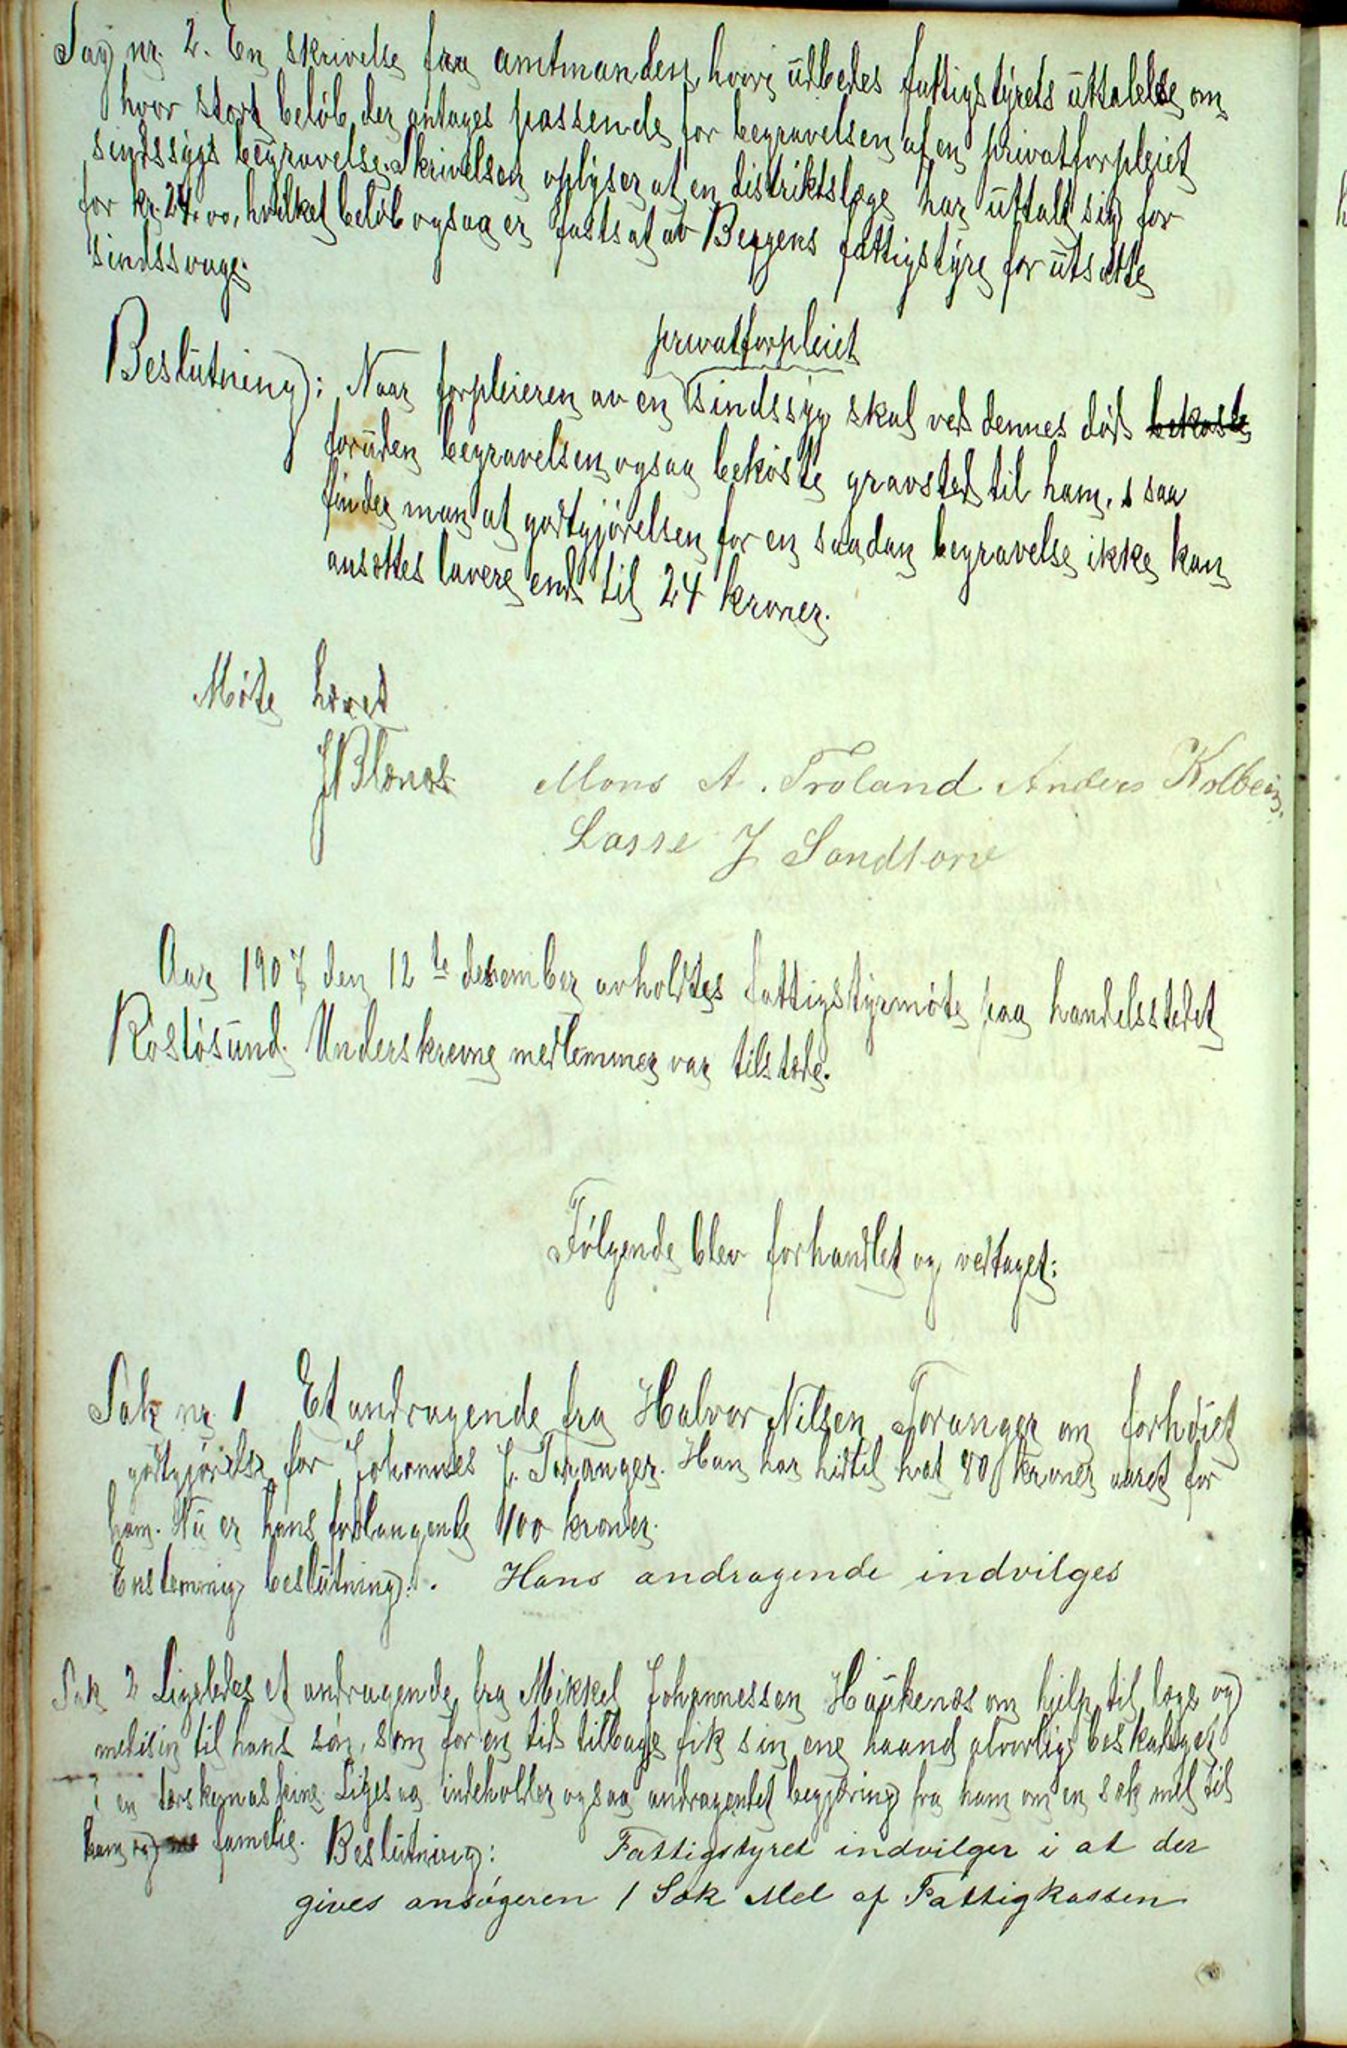 Sag nr. 2. En skrivelse fra amtmanden, hvori udbedes fattigstyrets uttalelse om
hvor stort beløb der antages passende for begravelsen af en privatforpleiet
sindssygs begravelse. Skrivelsen oplyser at en distriktslæge har uttalt sig for
for kr. 24.00, hvilket beløb ogsaa er fastsat av Bergens fattigstyre for utsatte
sindssvage.
privatforpleiet
Beslutning: Naar forpleieren av en sindssyg skal ved dennes død bekoste
foruden begravelsen ogsaa bekoste gravsted til ham, saa
finder man at godtgjørelsen for en saadan begravelse ikke kan
ansættes lavere end til 24 kroner.
Møte hævet
J Blænes Mons A. Troland Anders Kolbein.
Lasse J Sandtorv
Aar 1907 den 12te desember avholdtes fattigstyrmøte paa handelsstedet
Rostøsund. Underskrevne medlemmer var tilstede.
Følgende blev forhandlet og vedtaget:
Sak nr 1 Et andragende fra Halvor Nilsen Toranger om forhøiet
godtgjørelse for Johannes J. Toranger. Han har hidtil hat 80 kroner aaret for
ham. Nu er hans forlangende 100 kroner.
Enstemmig beslutning: Hans andragende indvilges
Sak 2 Ligeledes et andragende fra Mikkel Johannessen Haukenæs om hjelp til læge og
medisin til hans søn, som for en tid tilbage fik sin ene haand alvorlig beskadiget
i en tærskemaskine. Ligesaa indeholder ogsaa andragendet begjæring fra ham om en sæk mel til
ham og familie. Beslutning: Fattigstyret indvilger i at der
gives ansøgeren 1 Sæk Mel af Fattigkassen